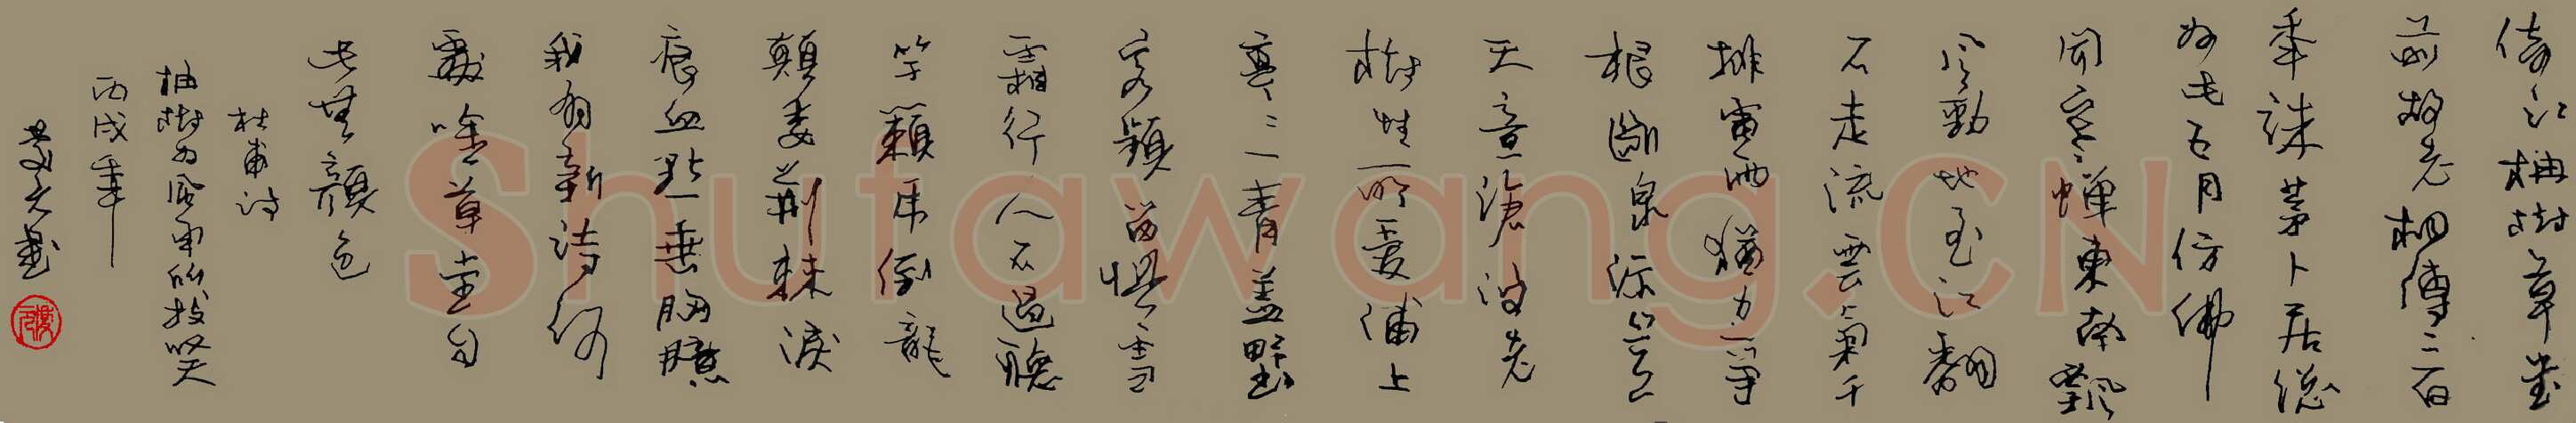 倚江楠樹草堂
前故老相傳二百
年誅茅卜居總
為此五月仿佛
聞寒蟬東南飄
風動地至江翻
石走流雲氣千
排雷雨猶力爭
根斷泉源豈
天意滄波老
樹性所愛浦上
童童一青蓋野
客頻留懼雪
霜行人不過聽
竽籟虎倒龍
顛委荊棘淚
痕血點垂胸臆
我有新詩何
處吟草堂自
此無顏色
杜甫詩
柟樹為風雨所拔嘆
丙戌年
Shufawang.CN